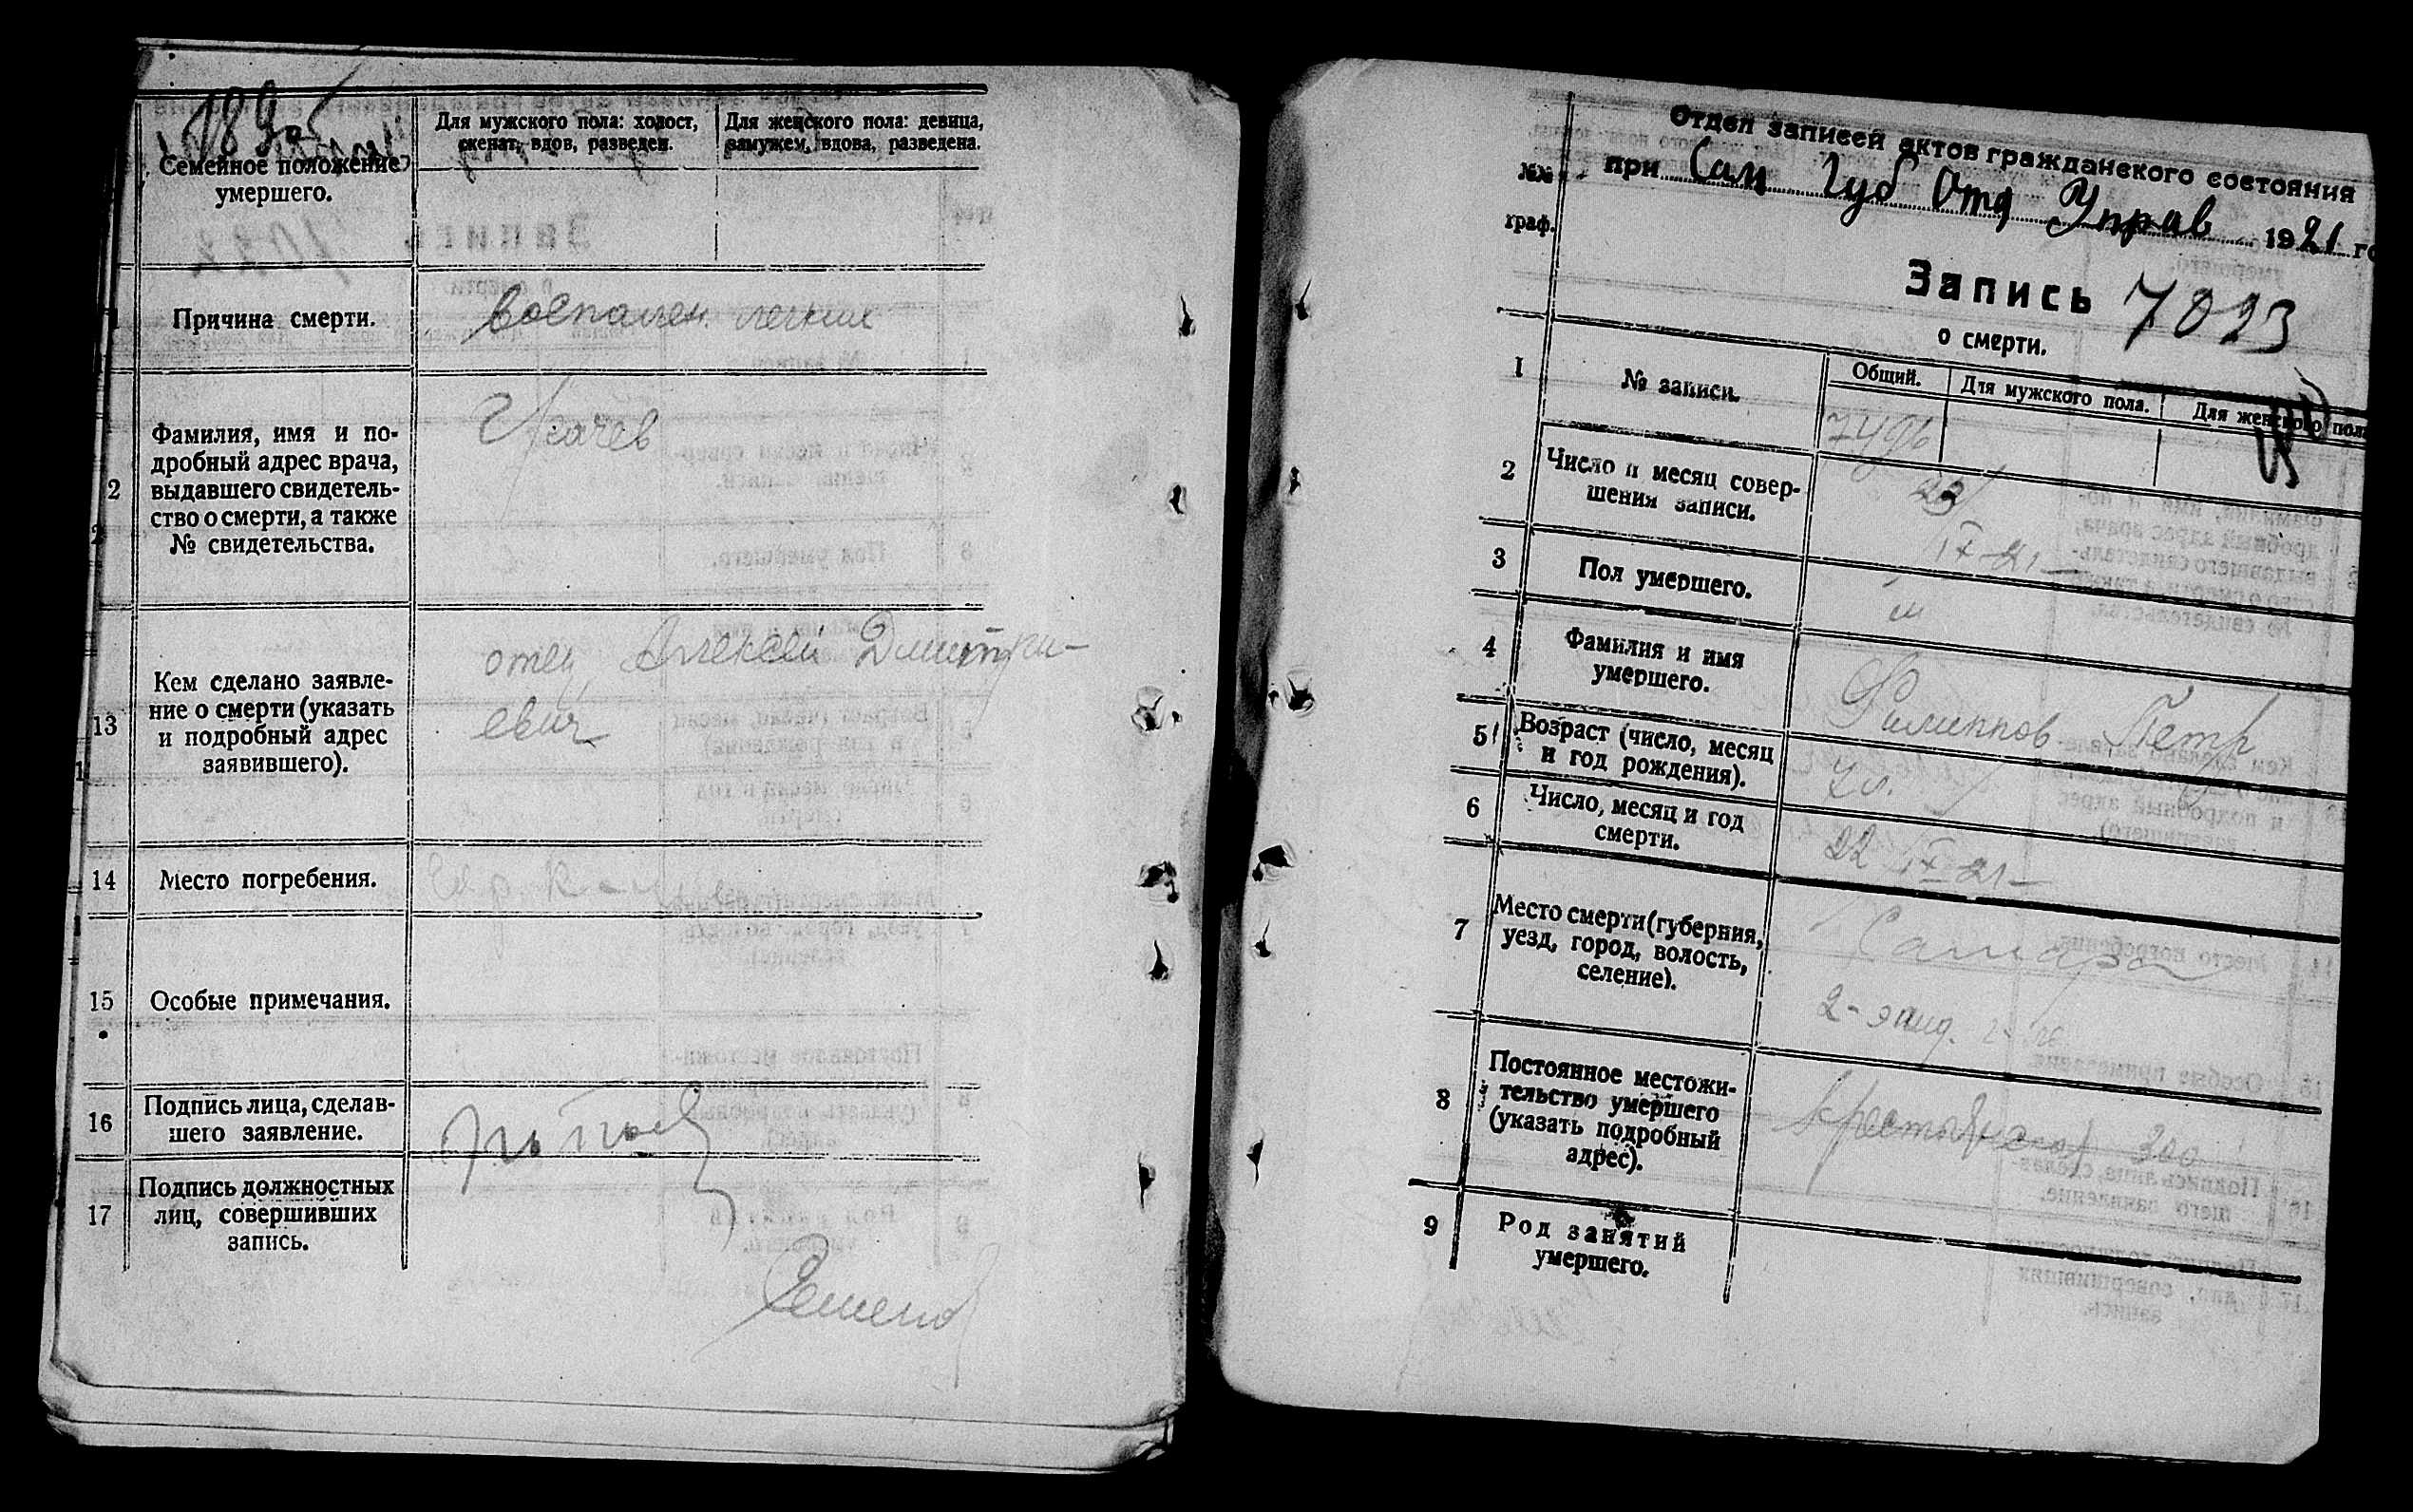 Семейное положение
умершего.
Для мужского пола: холост,
женат, вдов, разведен.
Для женского пола: девица,
замужем, вдова, разведена.
Причина смерти.
воспален. легких
2
Фамилия, имя и по-
дробный адрес врача,
выдавшего свидетель-
ство о смерти, а также
№ свидетельства.
Усачев
13
Кем сделано заявле-
ние о смерти (указать
и подробный адрес
заявившего).
отец Алексей Дмитри-
евич
14
Место погребения.
15
Особые примечания.
16
Подпись лица, сделав-
шего заявление.
17
Подпись должностных
лиц, совершивших
запись.
Отдел записей актов гражданского состояния
при Сам Губ Отд Управ 1921 го
№№
граф.
Запись 7023
о смерти.
1
№ записи.
Общий.
Для мужского пола.
Для женского пола
2
Число и месяц совер-
шения записи.
22
IX-21
3
Пол умершего.
м
4
Фамилия и имя
умершего.
Филиппов Петр
5
Возраст (число, месяц
и год рождения).
6
Число, месяц и год
смерти.
22 IX-21
7
Место смерти (губерния,
уезд, город, волость,
селение).
Самара
2-эпид.
8
Постоянное местожи-
тельство умершего
(указать подробный
адрес).
300
9
Род занятий
умершего.